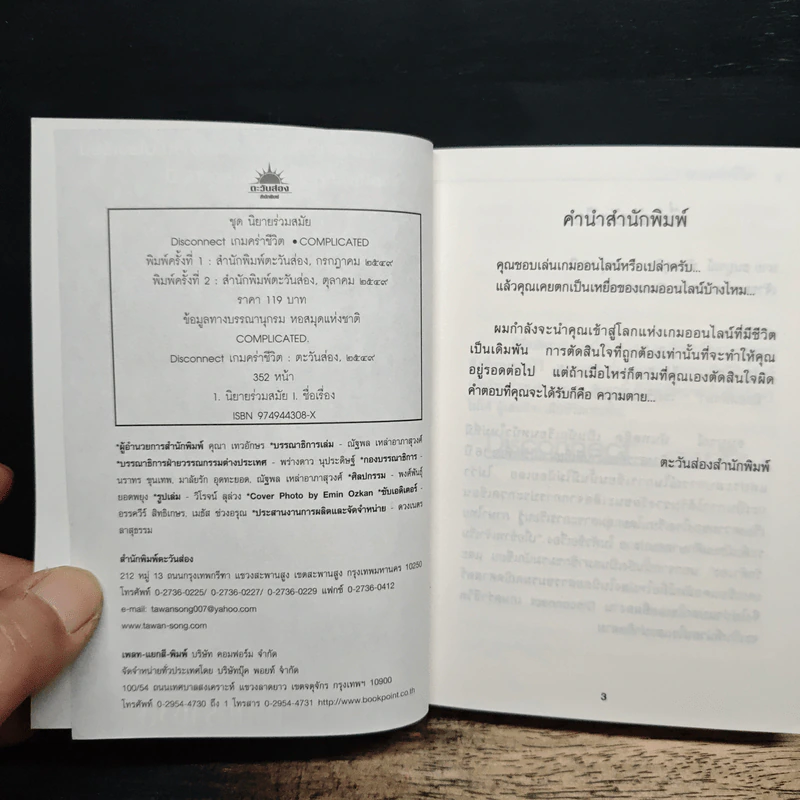 ตะวันส่อง
สำนักพิมพ์
ชุด นิยายร่วมสมัย
Disconnect เกมคร่าชีวิต • COMPLICATED
พิมพ์ครั้งที่ 1 : สำนักพิมพ์ตะวันส่อง, กรกฎาคม ๒๕๔๙
พิมพ์ครั้งที่ 2 : สำนักพิมพ์ตะวันส่อง, ตุลาคม ๒๕๔๙
ราคา 119 บาท
ข้อมูลทางบรรณานุกรม หอสมุดแห่งชาติ
COMPLICATED.
Disconnect เกมคร่าชีวิต : ตะวันส่อง, ๒๕๔๙
352 หน้า
1. นิยายร่วมสมัย I. ชื่อเรื่อง
ISBN 974944308-X
*ผู้อำนวยการสำนักพิมพ์ คุณา เทวอักษร *บรรณาธิการเล่ม - ณัฐพล เหล่าอาภาสุวงศ์
*บรรณาธิการฝ่ายวรรณกรรมต่างประเทศ - พร่างดาว นุประดิษฐ์ *กองบรรณาธิการ -
นราทร ขุนเทพ, มาลัยรัก อุดทะยอด, ณัฐพล เหล่าอาภาสุวงศ์ *ศิลปกรรม - พงศ์พันธุ์
ยอดพยุง *รูปเล่ม - วิโรจน์ ลุล่วง *Cover Photo by Emin Ozkan *ซับเอดิเตอร์ -
อรรควีร์ สิทธิเกษร, เมธัส ช่วงอรุณ *ประสานงานการผลิตและจัดจำหน่าย - ดวงเนตร
ลาสุธรรม
สำนักพิมพ์ตะวันส่อง
212 หมู่ 13 ถนนกรุงเทพกรีฑา แขวงสะพานสูง เขตสะพานสูง กรุงเทพมหานคร 10250
โทรศัพท์ 0-2736-0225/ 0-2736-0227/ 0-2736-0229 แฟกซ์ 0-2736-0412
e-mail: tawansong007@yahoo.com
www.tawan-song.com
เพลท-แยกสี-พิมพ์ บริษัท คอมฟอร์ม จำกัด
จัดจำหน่ายทั่วประเทศโดย บริษัทบุ๊ค พอยท์ จำกัด
100/54 ถนนเทศบาลสงเคราะห์ แขวงลาดยาว เขตจตุจักร กรุงเทพฯ 10900
โทรศัพท์ 0-2954-4730 ถึง 1 โทรสาร 0-2954-4731 http://www.bookpoint.co.th
คำนำสำนักพิมพ์
คุณชอบเล่นเกมออนไลน์หรือเปล่าครับ...
แล้วคุณเคยตกเป็นเหยื่อของเกมออนไลน์บ้างไหม...
ผมกำลังจะนำคุณเข้าสู่โลกแห่งเกมออนไลน์ที่มีชีวิต
เป็นเดิมพัน การตัดสินใจที่ถูกต้องเท่านั้นที่จะทำให้คุณ
อยู่รอดต่อไป แต่ถ้าเมื่อไหร่ก็ตามที่คุณเองตัดสินใจผิด
คำตอบที่คุณจะได้รับก็คือ ความตาย...
ตะวันส่องสำนักพิมพ์
3